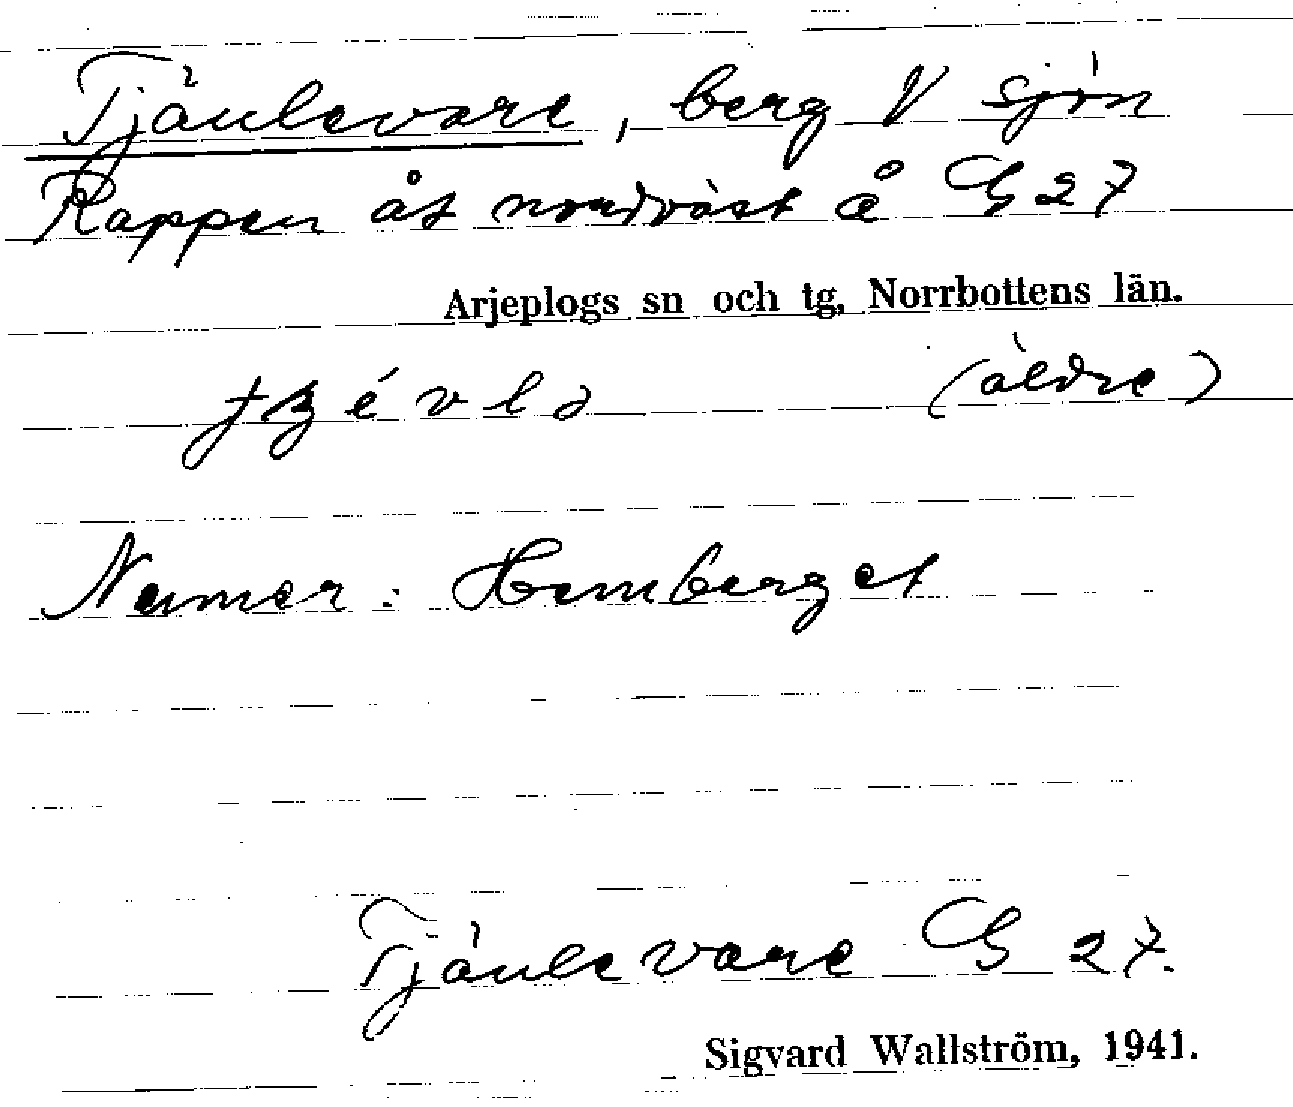 Tjäulevare, berg V sjön
Rappen åt nordväst å G 27
Arjeplogs sn och tg, Norrbottens län.
(äldre)
Numer: Hemberget
Tjäulevare G 27.
Sigvard Wallström, 1941.